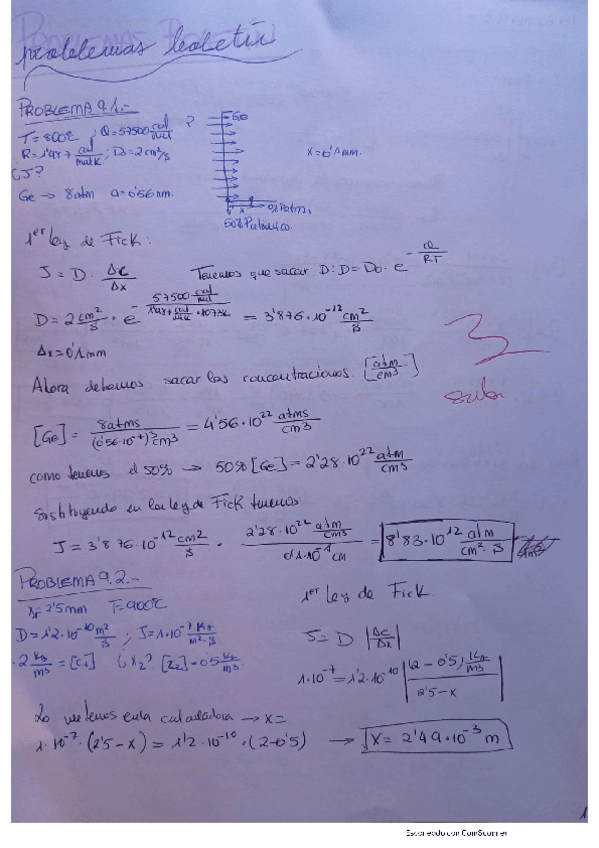 problemas boletín
PROBLEMA 9.1.-
T = 800ºC ; Q = 57500 cal/mol
R = 1'987 cal/mol K ; D₀ = 2 cm²/s
¿J?
Ge → 8 atm a = 0'56 nm.
Ge
X = 0'1 mm.
x
50% Pat
1er ley de Fick:
J = D · ΔC/Δx Tenemos que sacar D: D = D₀ · e^(- Q/RT)
D = 2 cm²/s · e^(- 57500 cal/mol / 1'987 cal/mol K · 1073K) = 3'876·10⁻¹² cm²/s
Δx = 0'1 mm
Ahora debemos sacar las concentraciones [atm/cm³]
[Ge] = 8 atms/(0'56·10⁻⁷)³ cm³ = 4'56·10²² atms/cm³
como tenemos el 50% → 50% [Ge] = 2'28·10²² atm/cm³
Sustituyendo en la ley de Fick tenemos:
J = 3'876·10⁻¹² cm²/s · 2'28·10²² atm/cm³ / 0'1·10⁻¹ cm = 8'83·10¹² atm/cm²·s
3
PROBLEMA 9.2.-
2'5 mm T = 900ºC
D = 1'2·10⁻¹⁰ m²/s ; J = 1·10⁻⁷ Kg/m²·s
·2 kg/m³ = [C₁] ¿x₂? 0'5 kg/m³
1er Ley de Fick.
J = D |ΔC/Δx|
1·10⁻⁷ = 1'2·10⁻¹⁰ |(2 - 0'5) Kg/m³ / 2'5 - x|
Lo metemos en la calculadora → x =
1·10⁻⁷·(2'5 - x) = 1'2·10⁻¹⁰·(2 - 0'5) → X = 2'49·10⁻³ m
1
Escaneado con CamScanner